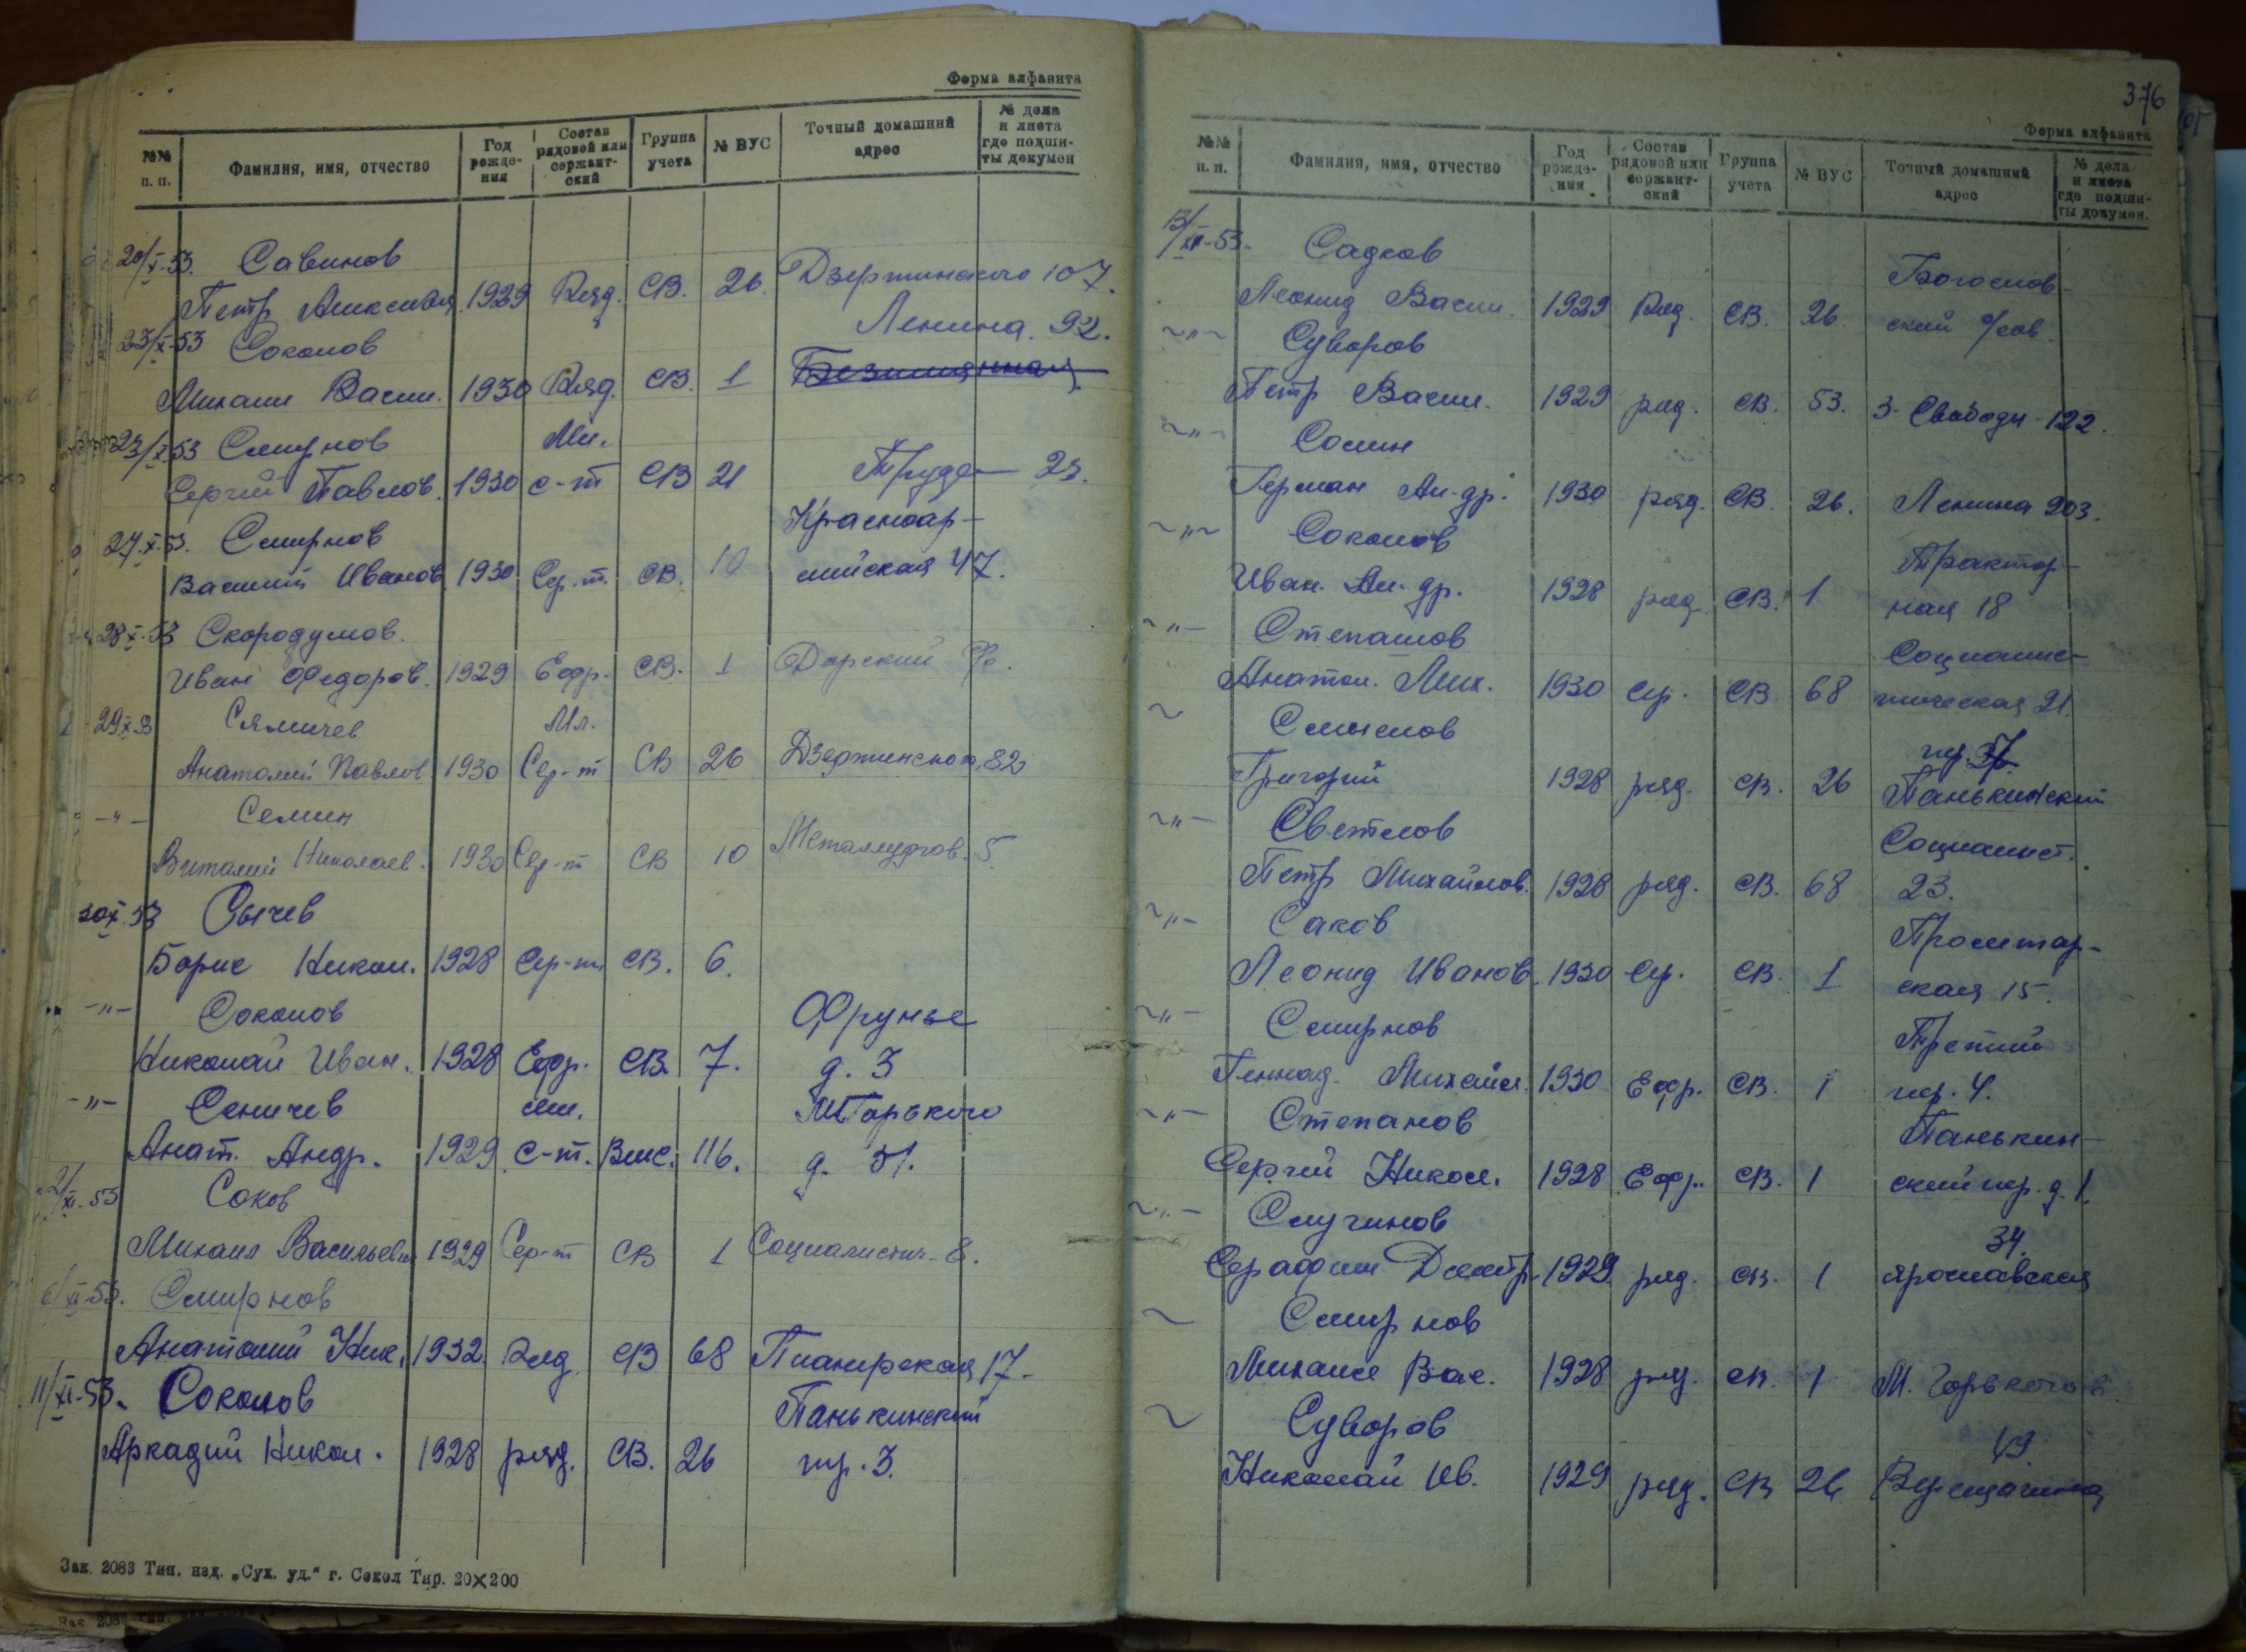 Форма алфавита
№№ п. п. Фамилия, имя, отчество Год рождения Состав рядовой или сержантский Группа учета № ВУС Точный домашний адрес № дела и листа где подшиты докумен
20/X-53. Савинов
Петр Александр. 1929 Ряд. СВ. 26. Дзержинского 107.
23/X-53 Соколов Ленина. 92.
Михаил Васил. 1930 Ряд. СВ. 1 Безимянная
23/X.53 Смирнов Мл.
Сергей Павлов. 1930 с-т СВ 21 Труда
27.X.53. Смирнов Красноар-
Василий Иванов. 1930 Сер.т. СВ. 10 мийская 47.
28X.53 Скородумов.
Иван Федоров. 1929 Ефр. СВ. 1
29.X.53 Сямичев Мл.
Анатолий Павлов 1930 Сер-т СВ 26 Дзержинского, 82
-"- Семин
Виталий Николаев. 1930 Сер-т СВ 10 Металлургов. 5.
30X.53 Сычев
Борис Никол. 1928 Сер-т СВ. 6.
-"- Соколов Фрунзе
Николай Иван. 1928 Ефр. СВ. 7. д. 3
-"- Сеничев мл. М Горького
Анат. Андр. 1929 с-т. 116. д. 51.
2/XI.53 Соков
Михаил Васильевич 1929 Сер-т СВ 1 Социалистич. 8.
6/XI-53. Смирнов
Анатолий Ник. 1932. Ряд. СВ 68 Пионерская 17.
11/XI-53. Соколов Панькинский
Аркадий Никол. 1928 ряд. СВ. 26 пер. 3.
Зак. 2083 Тип. изд. „Сух. уд.“ г. Сокол Тир. 20×200
376
Форма алфавита
№№ п. п. Фамилия, имя, отчество Год рождения Состав рядовой или сержантский Группа учета № ВУС Точный домашний адрес № дела и листа где подшиты докумен.
13/XI-53. Садков Богослов-
Леонид Васил. 1929 Ряд. СВ. 26 ский
-"- Суворов
Петр Васил. 1929 ряд. СВ. 53. З. Свободы-122.
-"- Сомин
Герман Ал-др. 1930 ряд. СВ. 26. Ленина 203.
-"- Соколов Трактор-
Иван. Ал-др. 1928 ряд. СВ. 1 ная 18
-"- Степанов Социалис-
Анатол. Мих. 1930 Сер. СВ. 68 тическая 21.
~ Смыслов пер. 37.
Григорий 1928 ряд. СВ. 26 Панькинский
-"- Светлов Социалист.
Петр Михайлов. 1928 ряд. СВ. 68 23.
-"- Саков Пролетар-
Леонид Иванов. 1930 Сер. СВ. 1 ская 15.
-"- Смирнов Третий
Геннад. Михайл. 1930 Ефр. СВ. 1 пер. 4.
-"- Степанов Панькин-
Сергей Никол. 1928 Ефр. СВ. 1 ский пер. д. 1.
-"- Случинов 34.
Серафим Дмитр. 1929. ряд. СВ. 1 Ярославская
~ Смирнов
Михаил Вас. 1928 ряд. СВ. 1 М. Горького
~ Суворов 49.
Николай Ив. 1929 ряд. СВ 26 Верещагина